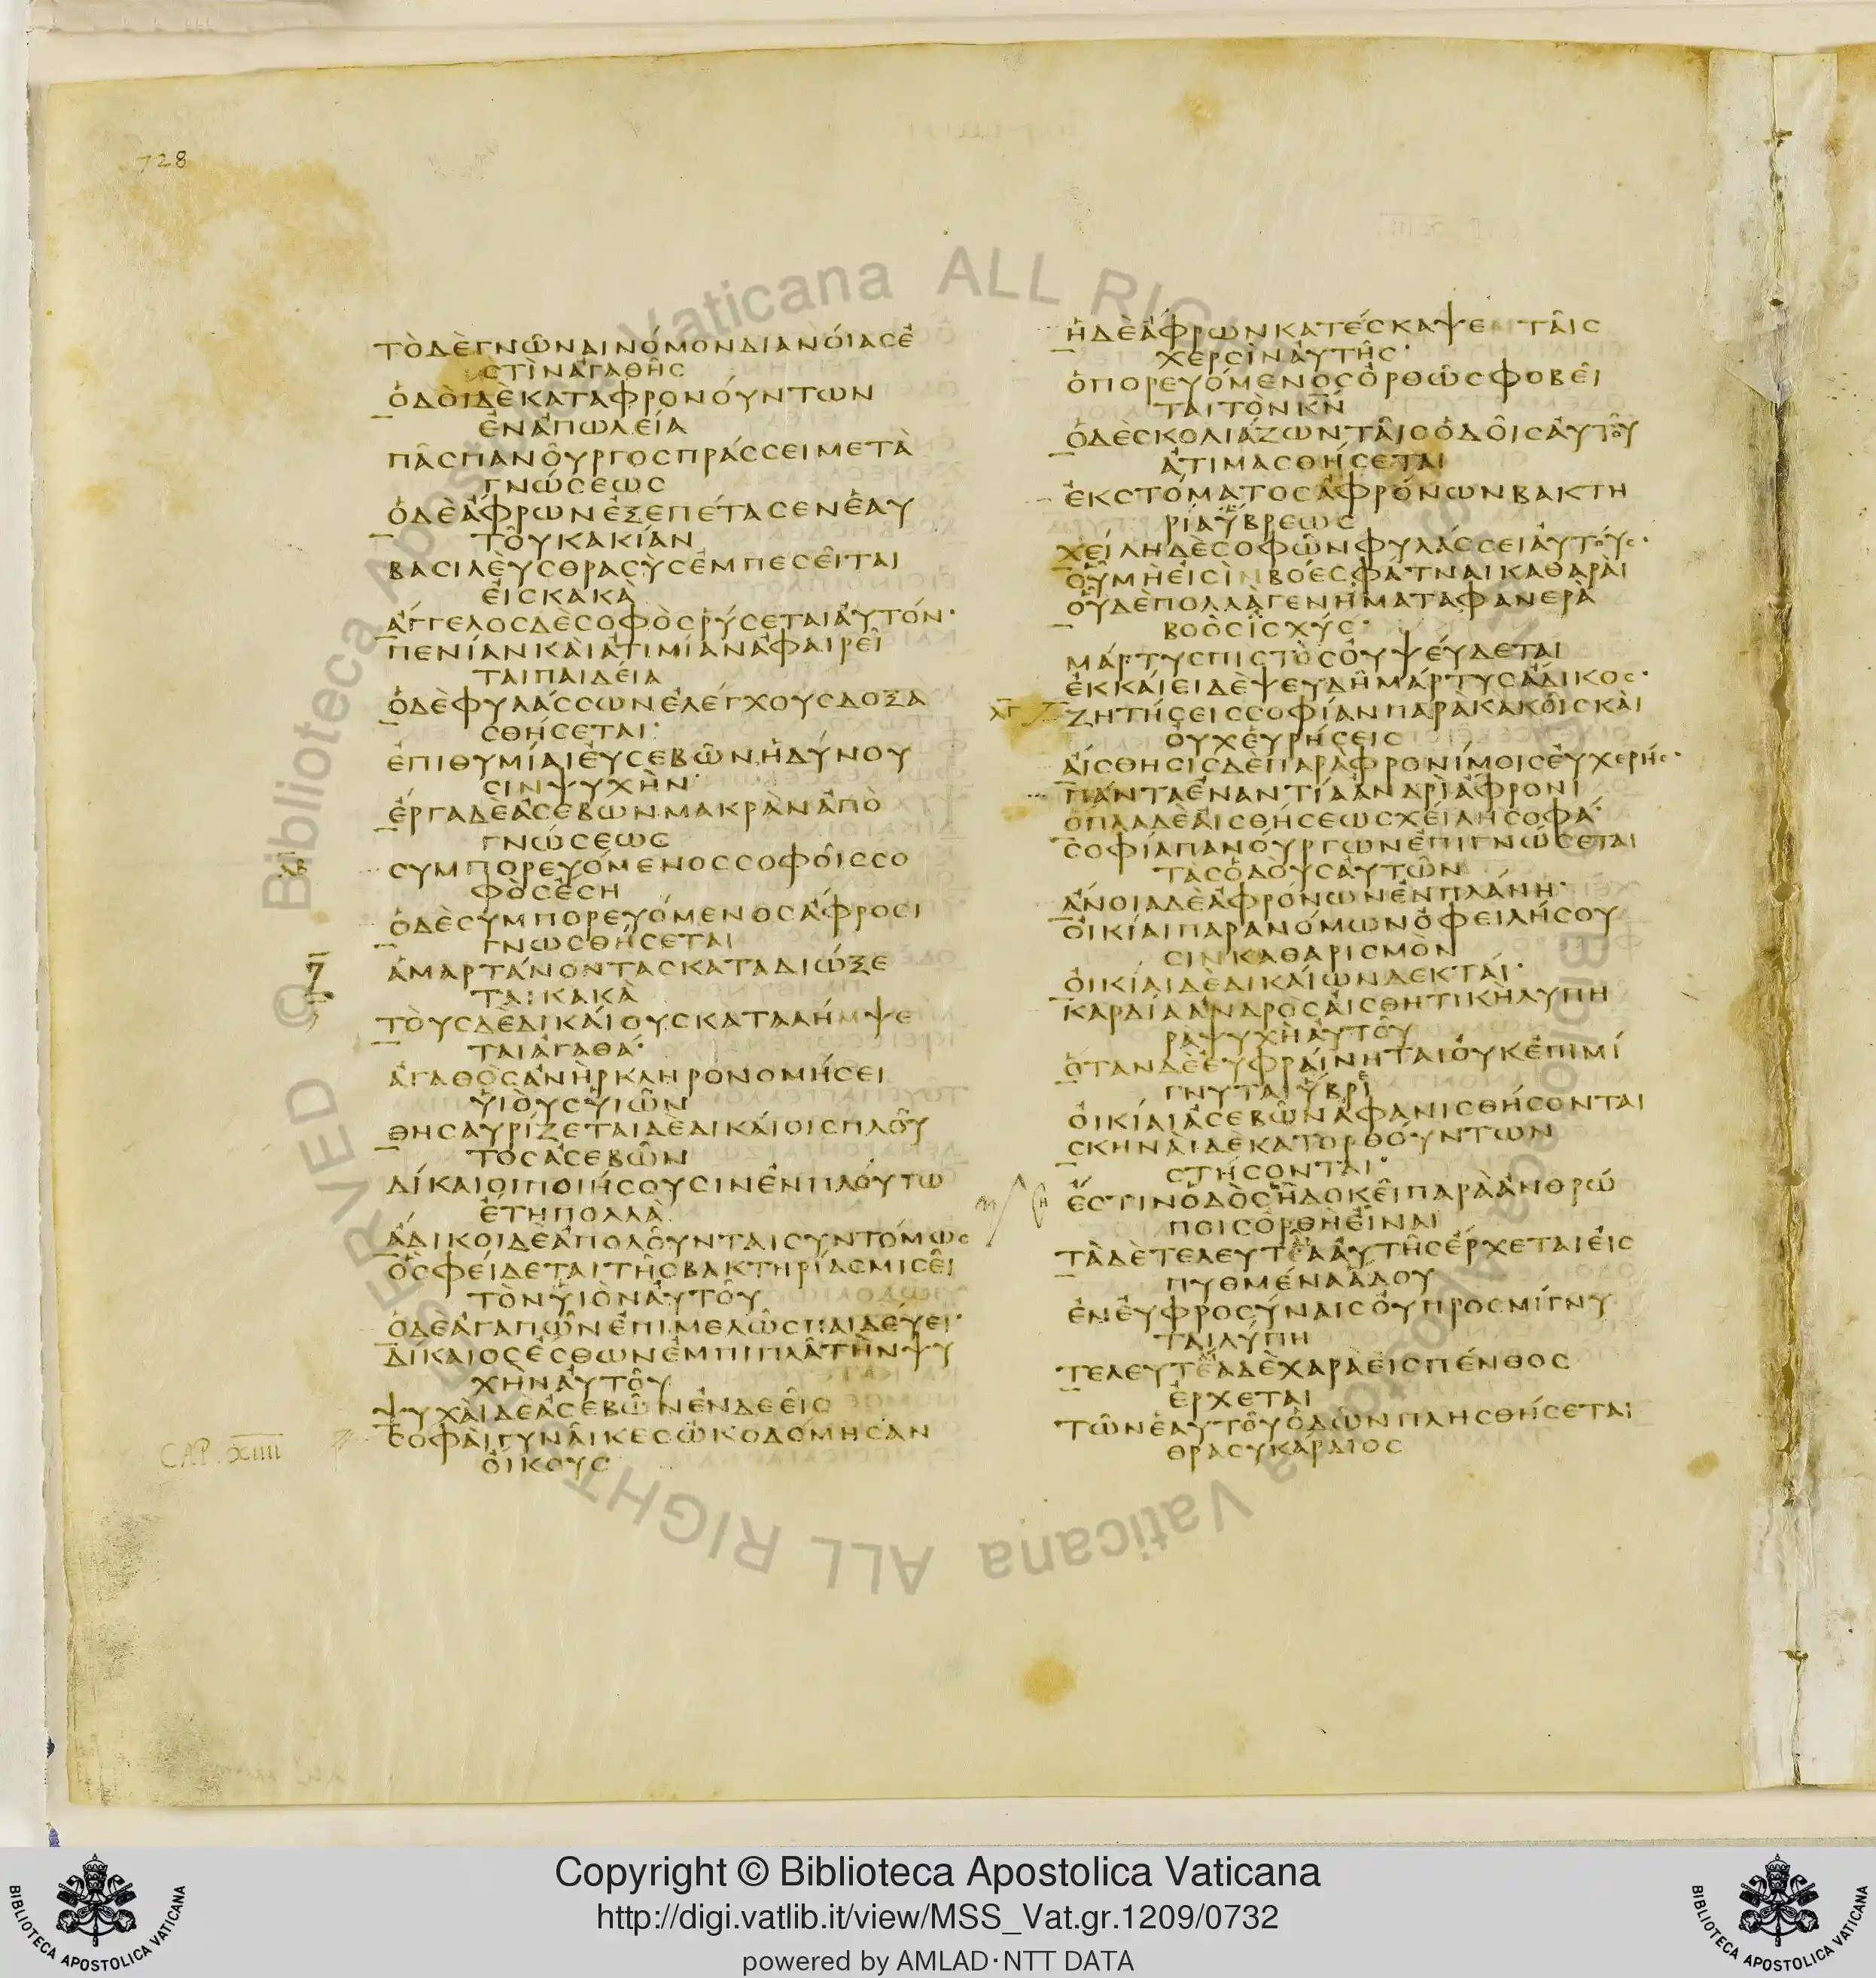 728
ΤῸΔῈΓΝΩ͂ΝΑΙΝΌΜΟΝΔΙΑΝΌΙΑCἘ
CΤῚΝἈΓΑΘΗ͂C
ὉΔῸΙΔῈΚΑΤΑΦΡΟΝΌΥΝΤΩΝ
ἘΝἈΠΩΛΕΊΑ
ΠΑ͂CΠΑΝΟ͂ΥΡΓΟCΠΡΆCCΕΙΜΕΤᾺ
ΓΝΏCΕΩC
ὉΔῈἌΦΡΩΝἘΞΕΠΈΤΑCΕΝἘΑΥ
ΤΟ͂ΥΚΑΚΊΑΝ
ΒΑCΙΛΕῪCΘΡΑCῪCἘΜΠΕCΕ͂ΙΤΑΙ
ἘΙCΚΑΚᾺ
ἌΓΓΕΛΟCΔῈCΟΦῸCῬΎCΕΤΑΙἈΥΤΌΝ·
ΠΕΝΊΑΝΚᾺΙἈΤΙΜΊΑΝἈΦΑΙΡΕ͂Ι
ΤΑΙΠΑΙΔΕΊΑ
ὉΔῈΦΥΛΆCCΩΝἘΛΈΓΧΟΥCΔΟΞΑ
CΘΉCΕΤΑΙ·
ἘΠΙΘΥΜΊΑΙἘΥCΕΒΩ͂ΝἩΔΎΝΟΥ
CΙΝΨΥΧῊΝ·
ἜΡΓΑΔΕἈCΕΒΩΝΜΑΚΡᾺΝἈΠῸ
ΓΝΏCΕΩC
CΥΜΠΟΡΕΥΌΜΕΝΟCCΟΦΟ͂ΙCCΟ
ΦῸCἜCΗ
ὉΔῈCΥΜΠΟΡΕΥΌΜΕΝΟCἌΦΡΟCΙ
ΓΝΩCΘΉCΕΤΑΙ
ἉΜΑΡΤΆΝΟΝΤΑCΚΑΤΑΔΙΏΞΕ
ΤΑΙΚΑΚᾺ
ΤῸΥCΔῈΔΙΚΆΙΟΥCΚΑΤΑΛΉΜΨΕ
ΤΑΙἈΓΑΘΆ·
ἈΓΑΘῸCἈΝῊΡΚΛΗΡΟΝΟΜΉCΕΙ
ΥἹῸΥCΥἹΩ͂Ν
ΘΗCΑΥΡΊΖΕΤΑΙΔῈΔΙΚΆΙΟΙCΠΛΟ͂Υ
ΤΟCἈCΕΒΩ͂Ν
ΔΊΚΑΙΟΙΠΟΙΉCΟΥCΙΝἘΝΠΛΟΎΤΩ
ἜΤΗΠΟΛΛΑ
ἌΔΙΚΟΙΔῈἈΠΟΛΟ͂ΥΝΤΑΙCΥΝΤΌΜΩC
ὋCΦΕΊΔΕΤΑΙΤΗ͂CΒΑΚΤΗΡΊΑCΜΙCΕ͂Ι
ΤῸΝΥἹῸΝἈΥΤΟ͂Υ
ὉΔῈἈΓΑΠΩ͂ΝἘΠΙΜΕΛΩ͂CΠΑΙΔΈΥΕΙ·
ΔΊΚΑΙΟCἜCΘΩΝἘΜΠΙΠΛΑ͂ΤῊΝΨΥ
ΧῊΝἈΥΤΟ͂Υ
ΨΥΧᾺΙΔῈἈCΕΒΩ͂ΝἘΝΔΕΕ͂ΙC
CΟΦᾺΙΓΥΝΑ͂ΙΚΕCὨΚΟΔΌΜΗCΑΝ
ὈΊΚΟΥC
CAP. XIIII
ἩΔῈἌΦΡΩΝΚΑΤΈCΚΑΨΕ ΤΑ͂ΙC
ΧΕΡCῚΝἈΥΤΗ͂C·
ὉΠΟΡΕΥΌΜΕΝΟCὈΡΘΩ͂CΦΟΒΕ͂Ι
ΤΑΙΤῸΝΚΝ
ὉΔῈCΚΟΛΙΆΖΩΝΤΑ͂ΙCὉΔΟ͂ΙCἈΥΤΟ͂Υ
ἈΤΙΜΑCΘΉCΕΤΑΙ
ἘΚCΤΌΜΑΤΟCἈΦΡΌΝΩΝΒΑΚΤΗ
ΡΊΑὝΒΡΕΩC
ΧΕΊΛΗΔῈCΟΦΩ͂ΝΦΥΛΆCCΕΙἈΥΤΟΎC·
ΟὟΜῊἘΙCῚΝΒΌΕCΦΆΤΝΑΙΚΑΘΑΡᾺΙ
ΟΥ̓ΔῈΠΟΛΛᾺΓΕΝΉΜΑΤΑΦΑΝΕΡᾺ
ΒΟῸCἸCΧΎC·
ΜΆΡΤΥCΠΙCΤῸCΟΥ̓ΨΈΥΔΕΤΑΙ
ἘΚΚΆΙΕΙΔῈΨΕΥΔΗ͂ΜΆΡΤΥCἌΔΙΚΟC·
ΖΗΤΉCΕΙCCΟΦΊΑΝΠΑΡᾺΚΑΚΟ͂ΙCΚᾺΙ
ΟΥ̓ΧἙΥΡΉCΕΙC
ἌΙCΘΗCΙCΔῈΠΑΡΑΦΡΟΝΊΜΟΙCἘΥΧΕΡΉC·
ΠΆΝΤΑἘΝΑΝΤΊΑἈΝΔΡῚἌΦΡΟΝΙ
ὍΠΛΑΔῈἈΙCΘΉCΕΩCΧΕΊΛΗCΟΦΆ·
CΟΦΊΑΠΑΝΟΎΡΓΩΝἘΠΙΓΝΏCΕΤΑΙ
ΤᾺCὉΔΟῪCἈΥΤΩ͂Ν
ἌΝΟΙΑΔῈἈΦΡΌΝΩΝἘΝΠΛΆΝΗ·
ὈΙΚΊΑΙΠΑΡΑΝΌΜΩΝὈΦΕΙΛΉCΟΥ
CΙΝΚΑΘΑΡΙCΜῸΝ
ὈΙΚΊΑΙΔῈΔΙΚΑΊΩΝΔΕΚΤΑΊ·
ΚΑΡΔΊΑἈΝΔΡῸCἈΙCΘΗΤΙΚῊΛΥΠΗ
ΡΑΨΥΧῊἈΥΤΟ͂Υ
ὍΤΑΝΔῈἘΥΦΡΑΊΝΗΤΑΙΟΥ̓ΚἘΠΙΜΊ
ΓΝΥΤΑΙὝΒΡΙ
ὈΙΚΊΑΙἈCΕΒΩ͂ΝἈΦΑΝΙCΘΉCΟΝΤΑΙ
CΚΗΝᾺΙΔῈΚΑΤΟΡΘΟΎΝΤΩΝ
CΤΉCΟΝΤΑΙ·
ἜCΤΙΝὉΔῸCἫΔΟΚΕ͂ΙΠΑΡᾺἈΝΘΡΏ
ΠΟΙCὈΡΘῊἘΊΝΑΙ
ΤᾺΔῈΤΕΛΕΥΤΕΑἈΥΤΗ͂CἜΡΧΕΤΑΙἘΙC
ΠΥΘΜΈΝΑἍΔΟΥ
ἘΝἘΥΦΡΟCΎΝΑΙCΟΥ̓ΠΡΟCΜΊΓΝΥ
ΤΑΙΛΎΠΗ
ΤΕΛΕΥΤΕΑΔῈΧΑΡᾺἘΙCΠΈΝΘΟC
ἜΡΧΕΤΑΙ
ΤΩ͂ΝἘΑΥΤΟ͂ΥὉΔΩ͂ΝΠΛΗCΘΉCΕΤΑΙ
ΘΡΑCΥΚΆΡΔΙΟC
Copyright © Biblioteca Apostolica Vaticana
http://digi.vatlib.it/view/MSS_Vat.gr.1209/0732
powered by AMLAD·NTT DATA
BIBLIOTECA APOSTOLICA VATICANA
BIBLIOTECA APOSTOLICA VATICANA